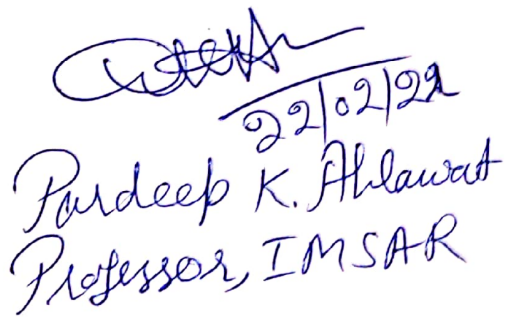 22/02/22
Pardeep K. Ahlawat
Professor, IMSAR